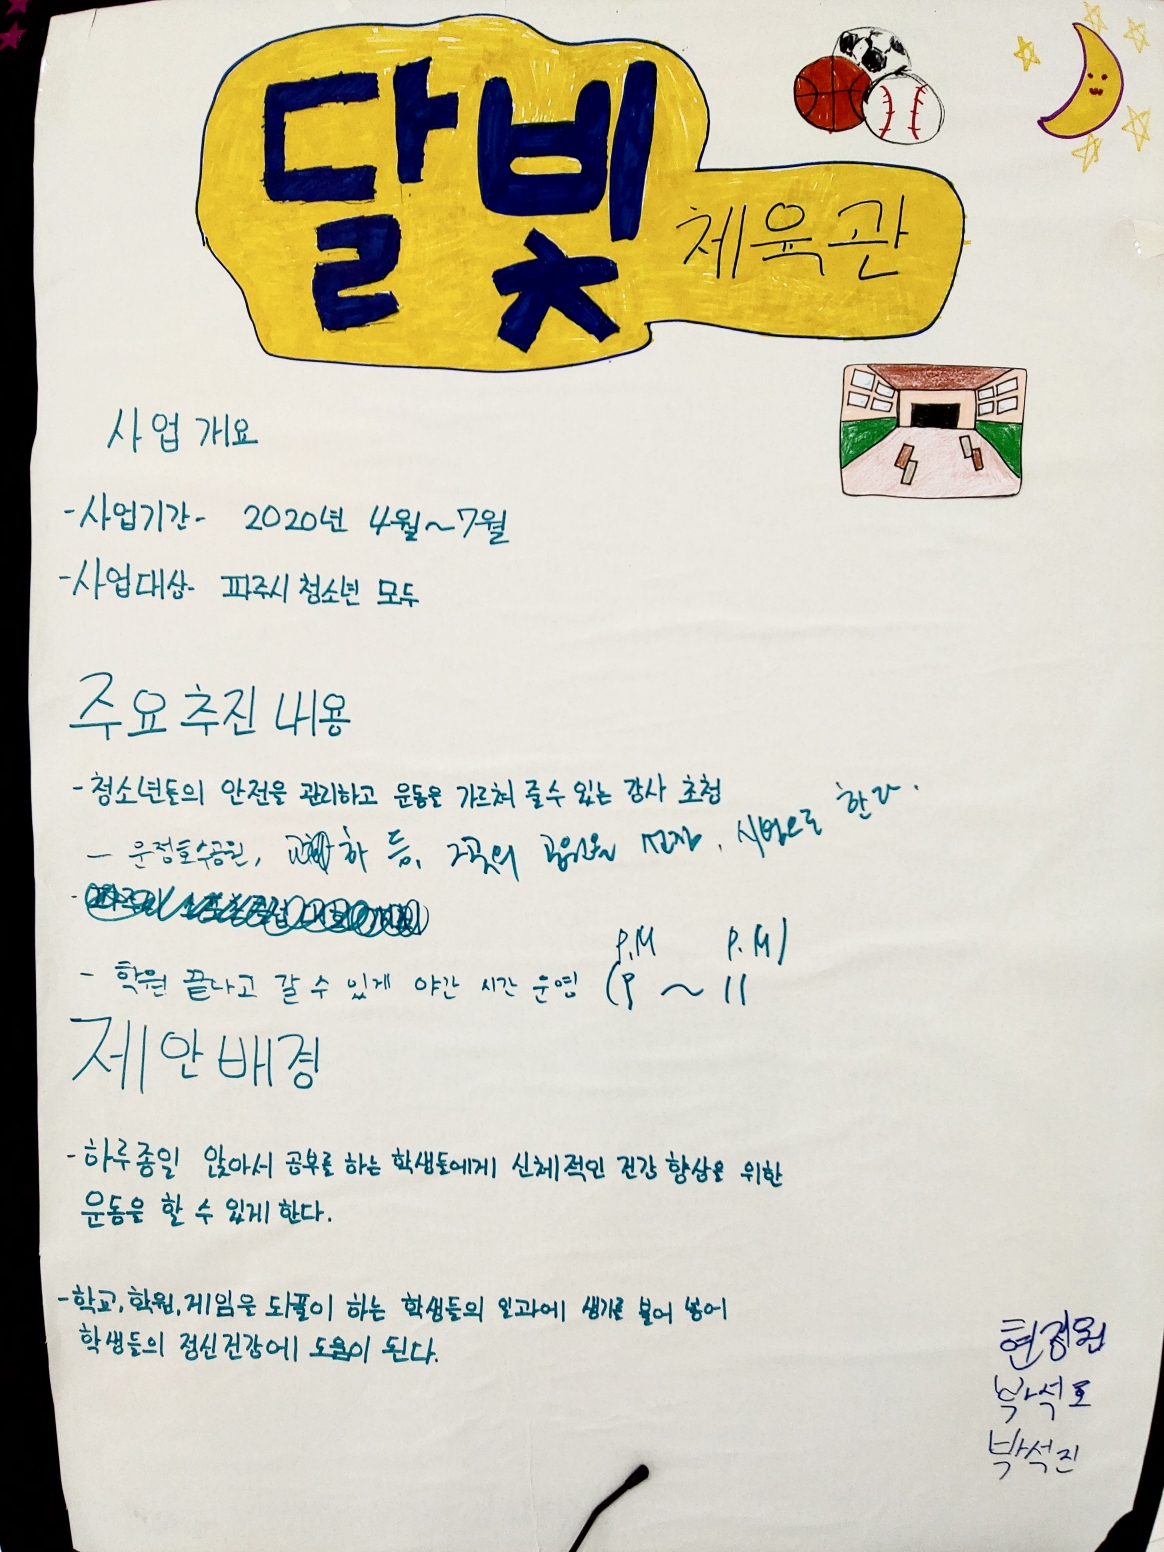 달빛 체육관
사업 개요
-사업기간- 2020년 4월~7월
-사업대상- 파주시 청소년 모두
주요 추진 내용
-청소년들의 안전을 관리하고 운동을 가르쳐 줄수 있는 강사 초청
- 운정호수공원, 하 등, 2곳의 공원을 선정, 시범으로 한다.
- 학원 끝나고 갈 수 있게 야간 시간 운영 (9 P.M ~ 11 P.M)
제안배경
-하루종일 앉아서 공부를 하는 학생들에게 신체적인 건강 향상을 위한
운동을 할 수 있게 한다.
-학교, 학원, 게임을 되풀이 하는 학생들의 일과에 생기를 불어 넣어
학생들의 정신건강에 도움이 된다.
현정원
박석호
박석진